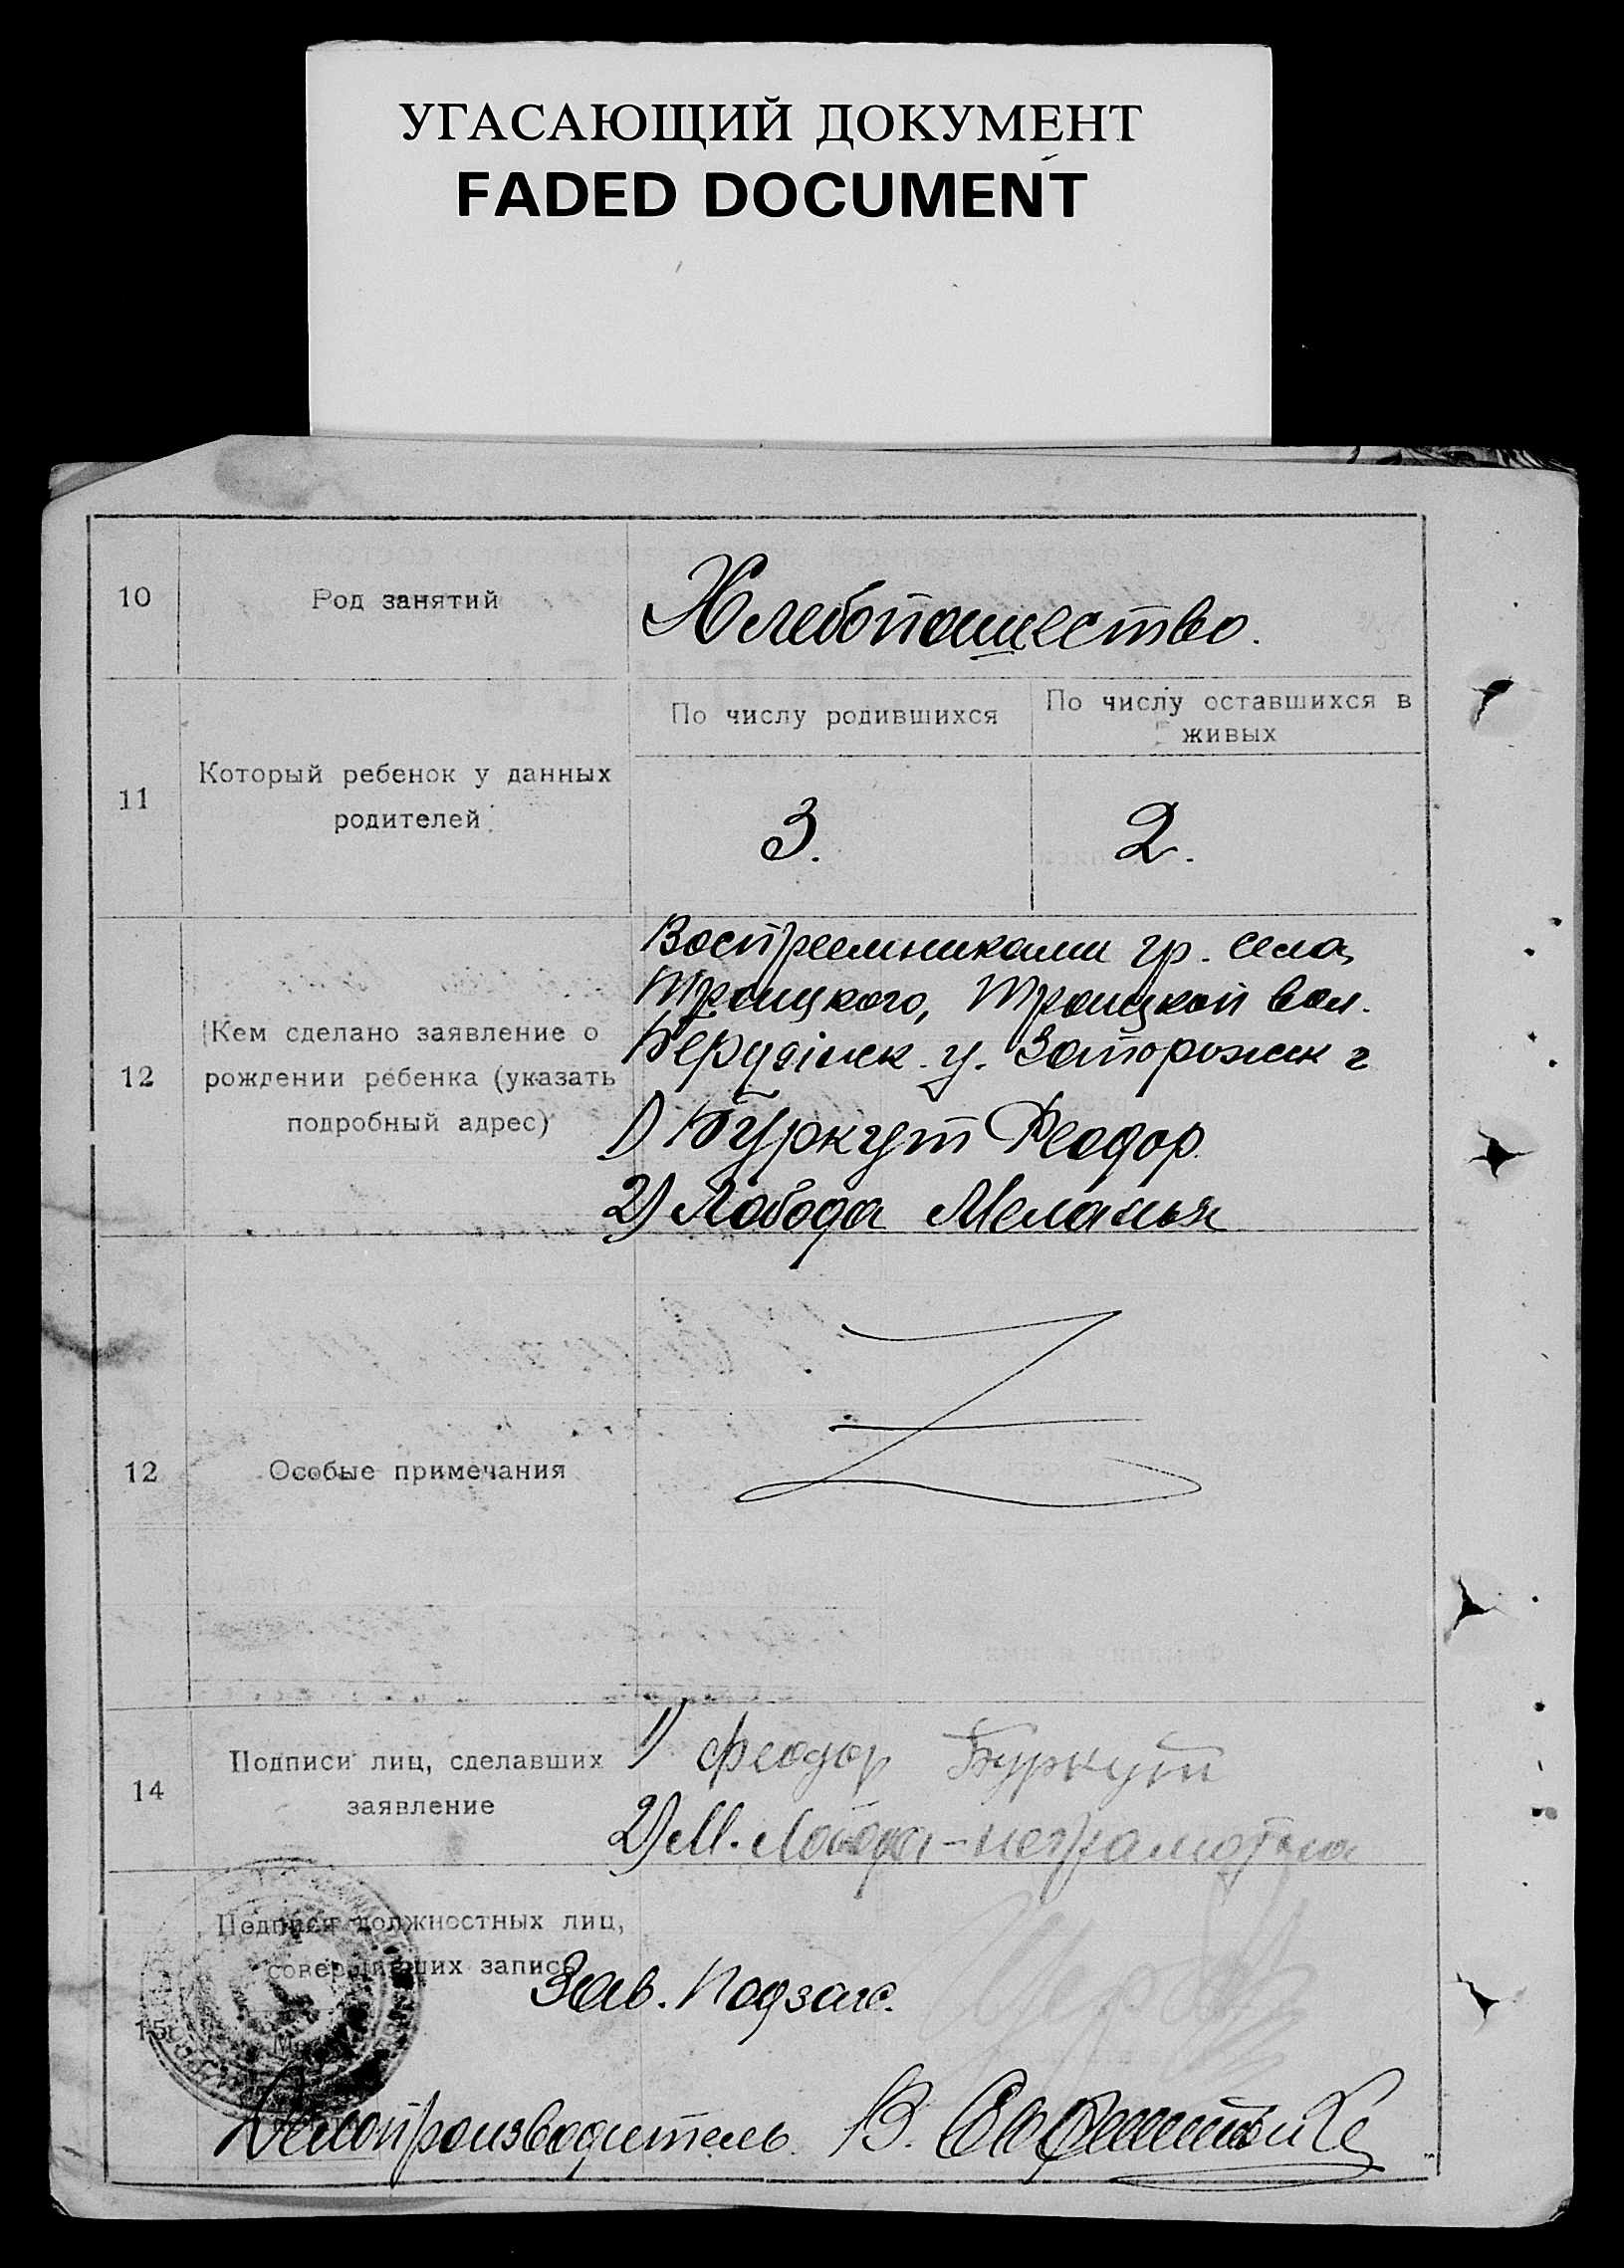 УГАСАЮЩИЙ ДОКУМЕНТ
FADED DOCUMENT
10 Род занятий Хлебопашество.
По числу родившихся По числу оставшихся в
живых
11 Который ребенок у данных
родителей
3. 2.
Воспреемниками гр. села
Троицкого, Троицкой вол.
12 Кем сделано заявление о
рождении ребенка (указать
подробный адрес)
Бердянск. у. Запорожск г
1) Буркут Феодор.
2) Лобода Меланья
12 Особые примечания
14 Подписи лиц, сделавших
заявление
1) Феодор Буркут
2) М. Лобода - неграмотна
Подписи должностных лиц,
совершивших запись
15
Зав. Подзагс.
Делопроизводитель. В.